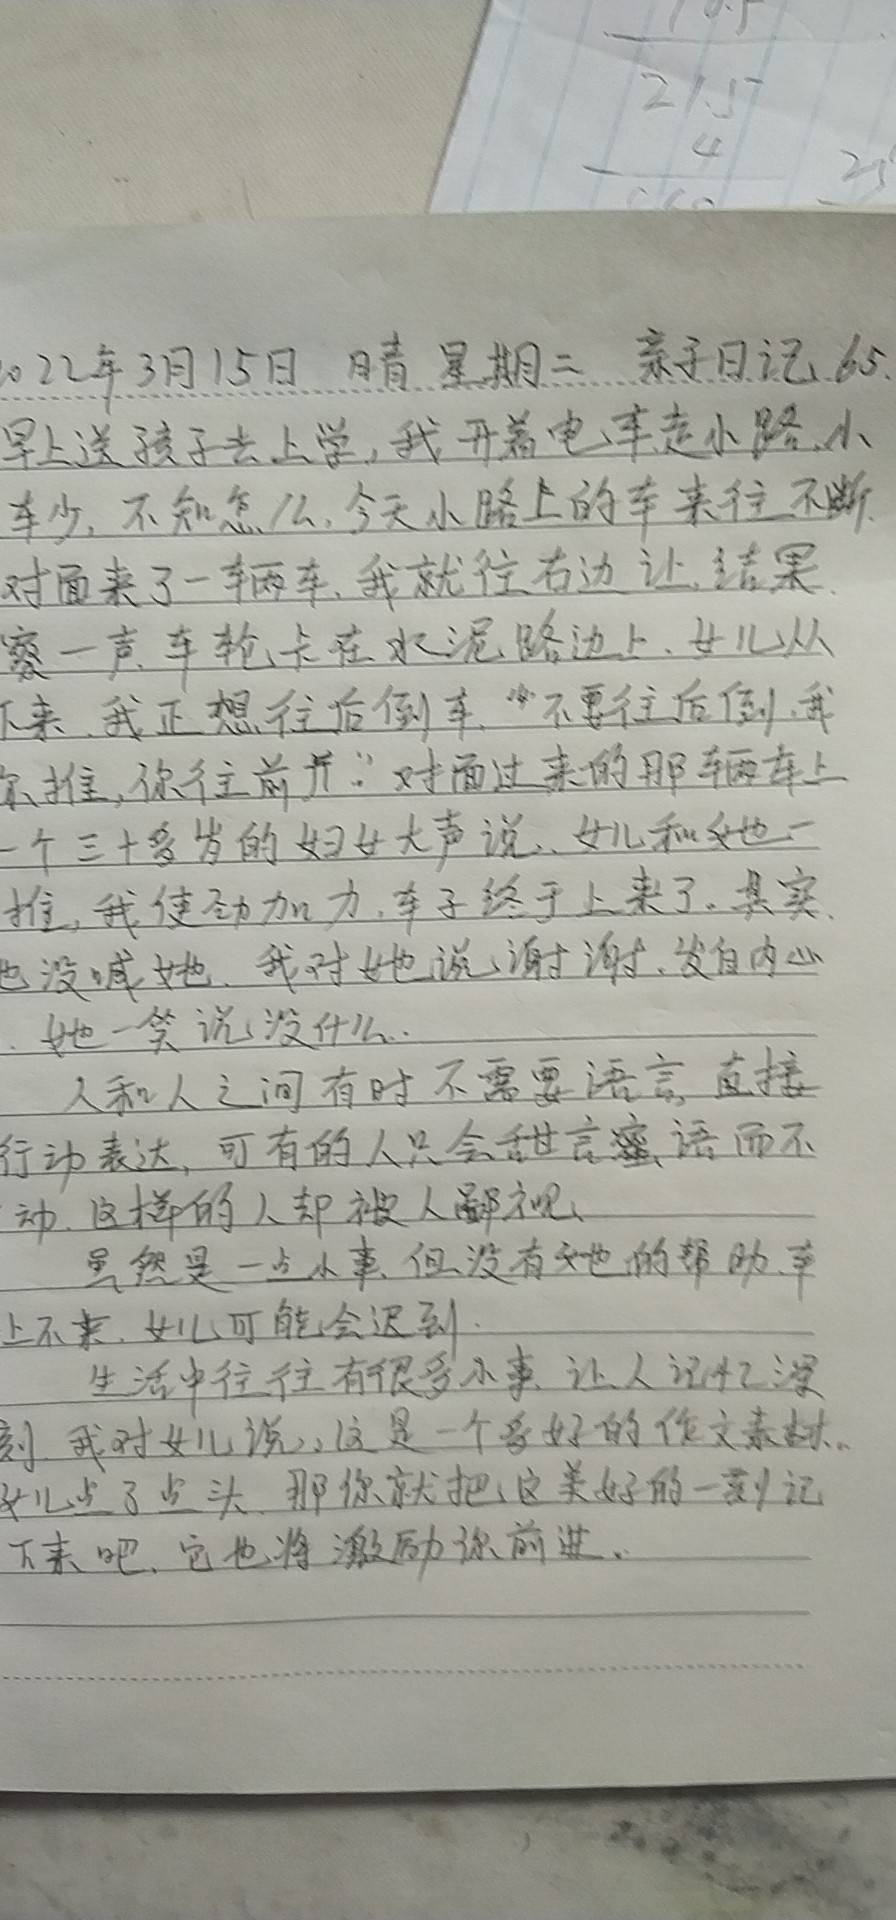 10.5
21.5
4
25
2022年3月15日 晴 星期二 亲子日记65.
早上送孩子去上学,我开着电车走小路,小
车少,不知怎么,今天小路上的车来往不断.
对面来了一辆车,我就往右边让,结果
察一声,车轮卡在水泥路边上,女儿从
下来,我正想往后倒车,“不要往后倒,我
你推,你往前开.”对面过来的那辆车上
一个三十多岁的妇女大声说,女儿和她一
推,我使劲加力,车子终于上来了.其实
也没喊她,我对她说谢谢,发自内心
.她一笑说没什么.
人和人之间有时不需要语言,直接
行动表达,可有的人只会甜言蜜语而不
动,这样的人却被人鄙视、
虽然是一点小事,但没有她的帮助,车
上不来,女儿可能会迟到.
生活中往往有很多小事,让人记忆深
刻,我对女儿说,这是一个多好的作文素材.
女儿点了点头,那你就把这美好的一刻记
下来吧,它也将激励你前进.